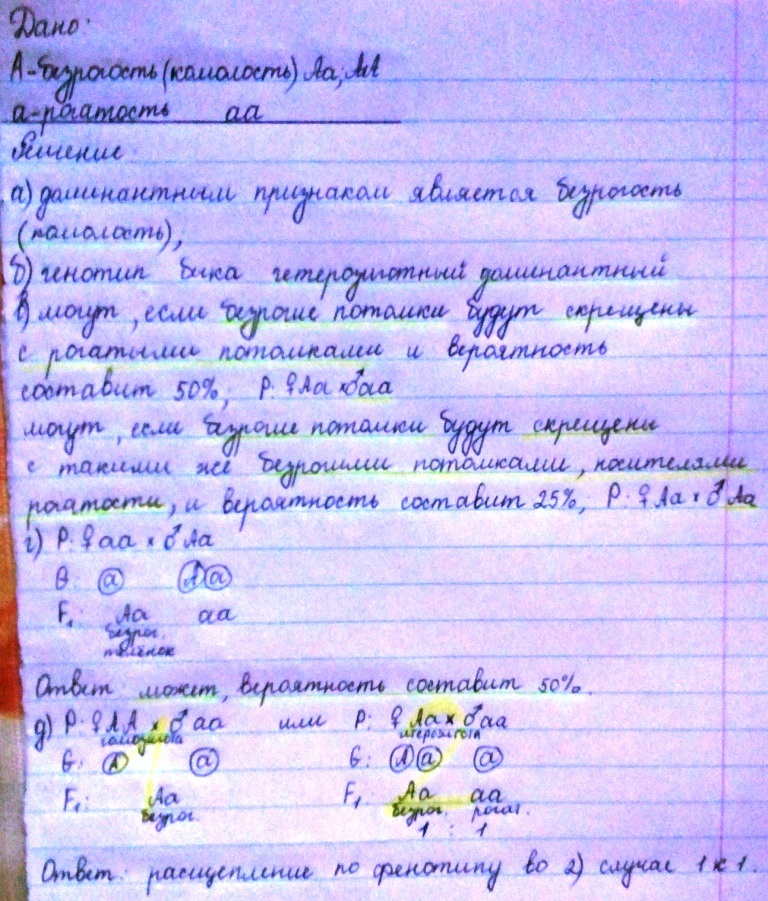 Дано:
А-безрогость (комолость) Аа; АА
а-рогатость аа
Решение:
а) доминантным признаком является безрогость
(комолость);
б) генотип быка гетерозиготный доминантный
в) могут, если безрогие потомки будут скрещены
с рогатыми потомками и вероятность
составит 50%; Р: ♀Аа × ♂аа
могут, если безрогие потомки будут скрещены
с такими же безрогими потомками, носителями
рогатости, и вероятность составит 25%, Р: ♀Аа × ♂Аа
г) Р: ♀аа × ♂Аа
G: а А а
F₁: Аа аа
безрог.
телёнок
Ответ может, вероятность составит 50%.
д) Р: ♀АА × ♂аа или Р: ♀Аа × ♂аа
гомозигота гетерозигота
G: А а G: А а а
F₁: Аа F₁ Аа аа
безрог. безрог. рогат.
1 : 1
Ответ: расщепление по фенотипу во 2) случае 1 к 1.